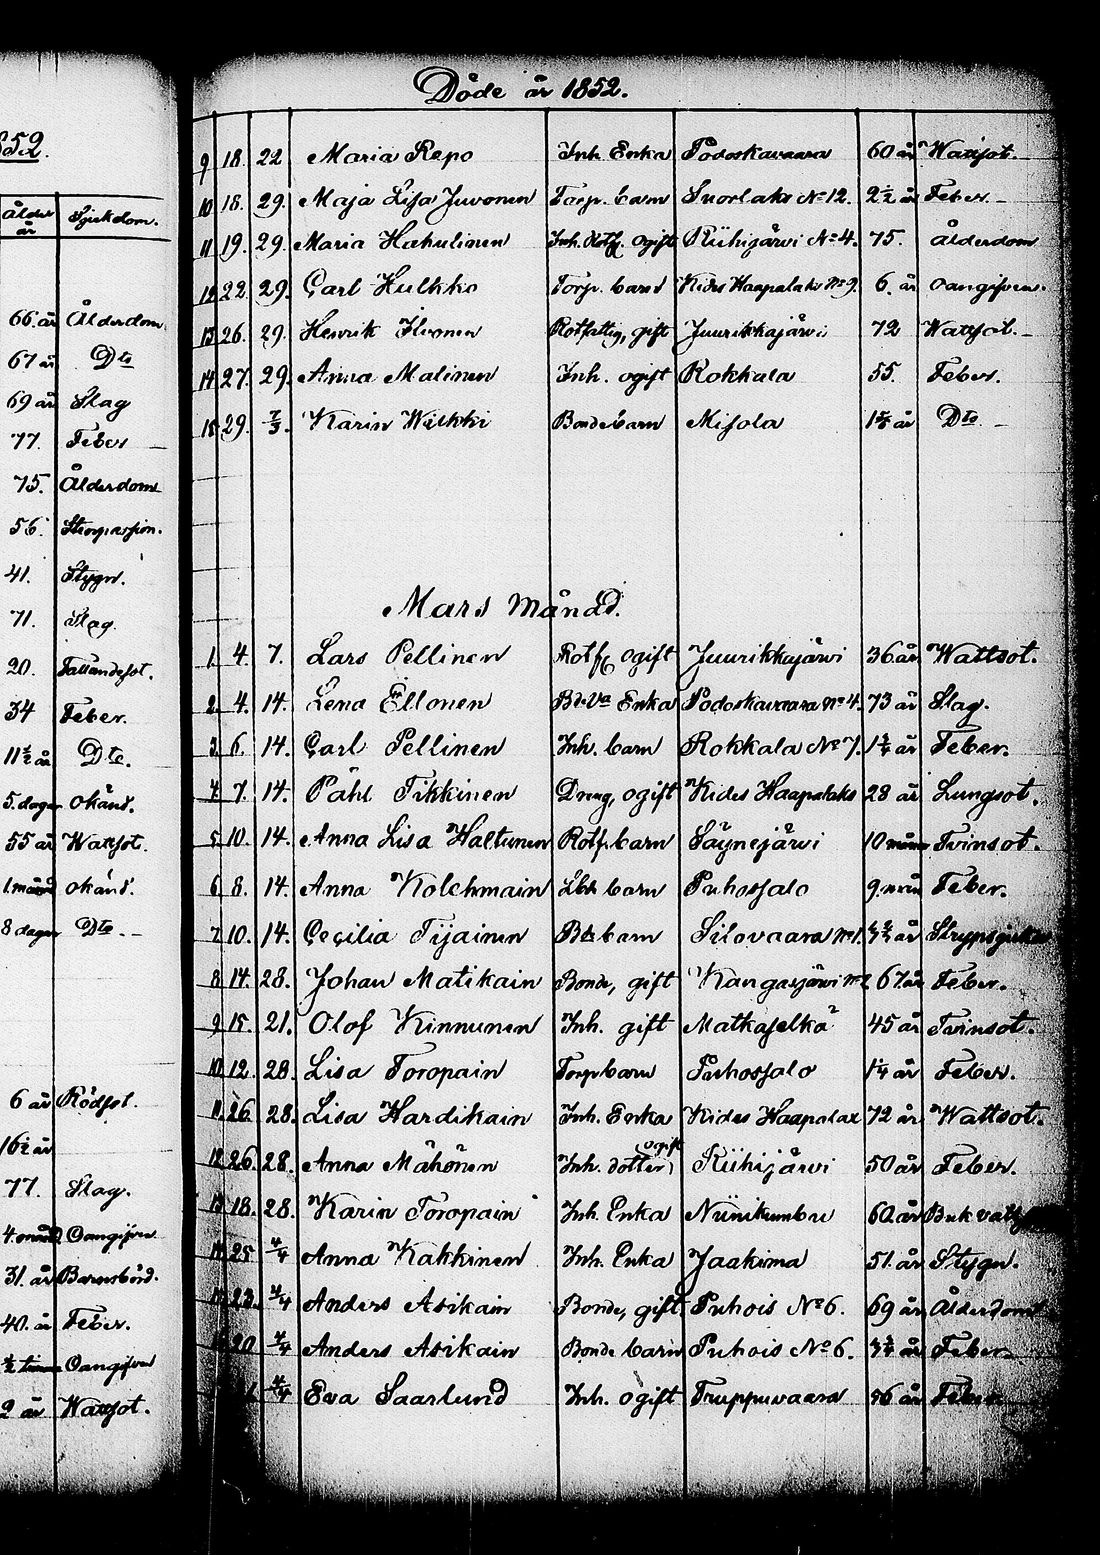 852.
Ålder år Sjukdom.
66. år Ålderdom
67 år Dto
69 år Slag
77. Feber
75. Ålderdom
56.
41. Stygn.
71. Slag.
20. Fallandesot.
34 Feber.
11½ år Dto.
5. dagar okänd.
55 år Wattsot.
1. månad okänd.
8 dagar Dto.
6 år Rödsot.
16½ år
77. Slag.
4. månad Oangifven
31. år Barnsbörd.
40. år Feber.
½ timme Oangifven
2 år Wattsot.
Döde år 1852.
9 18. 22 Maria Repo Inh. Enka Podoskavaara 60 år Wattsot.
10 18. 29. Maja Lisa Juvonen Torp. barn Suorlaks No 12. 2½ år Feber.
11 19. 29. Maria Hakulinen Inh. Rotf. ogift Riihijärvi No 4. 75. Ålderdom
12 22. 29. Carl Hulkko Torp. barn Kides Haapalaks No 9. 6. år oangifven.
13 26. 29. Henrik Ilvonen Rotfattig, gift Juurikkajärvi 72 Wattsot.
14 27. 29. Anna Malinen Inh. ogift Rokkala 55. Feber.
15 29. 7/3. Karin Wilkki Bonde barn Misola år Dto
Mars Månad.
1. 4. 7. Lars Pellinen Rotf. ogift Juurikkajärvi 36. år Wattsot.
2. 4. 14. Lena Ellonen Enka Podoskavaara No 4. 73 år Slag.
3. 6. 14. Carl Pellinen Inh. barn Rokkala No 7. år Feber.
4 7. 14. Påhl Tikkinen Dreng, ogift Kides Haapalaks 28 år Lungsot.
5. 10. 14. Anna Lisa Haltunen Rotf. barn Säynejärvi 10 mån Tvinsot.
6 8. 14. Anna Kolehmain barn Puhossalo 9. mån Feber.
7. 10. 14. Cecilia Tijainen barn Silovaara No 1. år Strypsjuka
8 14. 28. Johan Matikain Bonde, gift Kangasjärvi No 2 67 år Feber.
9 15. 21. Olof Kinnunen Inh. gift Matkaselkä 45 år Tvinsot.
10 12. 28. Lisa Toropain Torp barn Puhossalo 1¼ år Feber.
11. 26. 28. Lisa Hardikain Inh. Enka Kides Haapalax 72 år Wattsot.
12 26. 28. Anna Mähönen Inh. dotter, ogift Riihijärvi 50 år Feber.
13 18. 28. Karin Toropain Inh. Enka Niinikumbu 60. år Buk
14 25 4/4 Anna Kakkinen Inh. Enka Jaakima 51. år Stygn.
15 23. 4/4 Anders Asikain Bonde, gift Puhois No 6. 69 år Ålderdom
16 20 4/4 Anders Asikain Bonde barn Puhois No 6. år Feber
4/4 Eva Saarlund Inh. ogift Truppuvaara 56 år Feber.